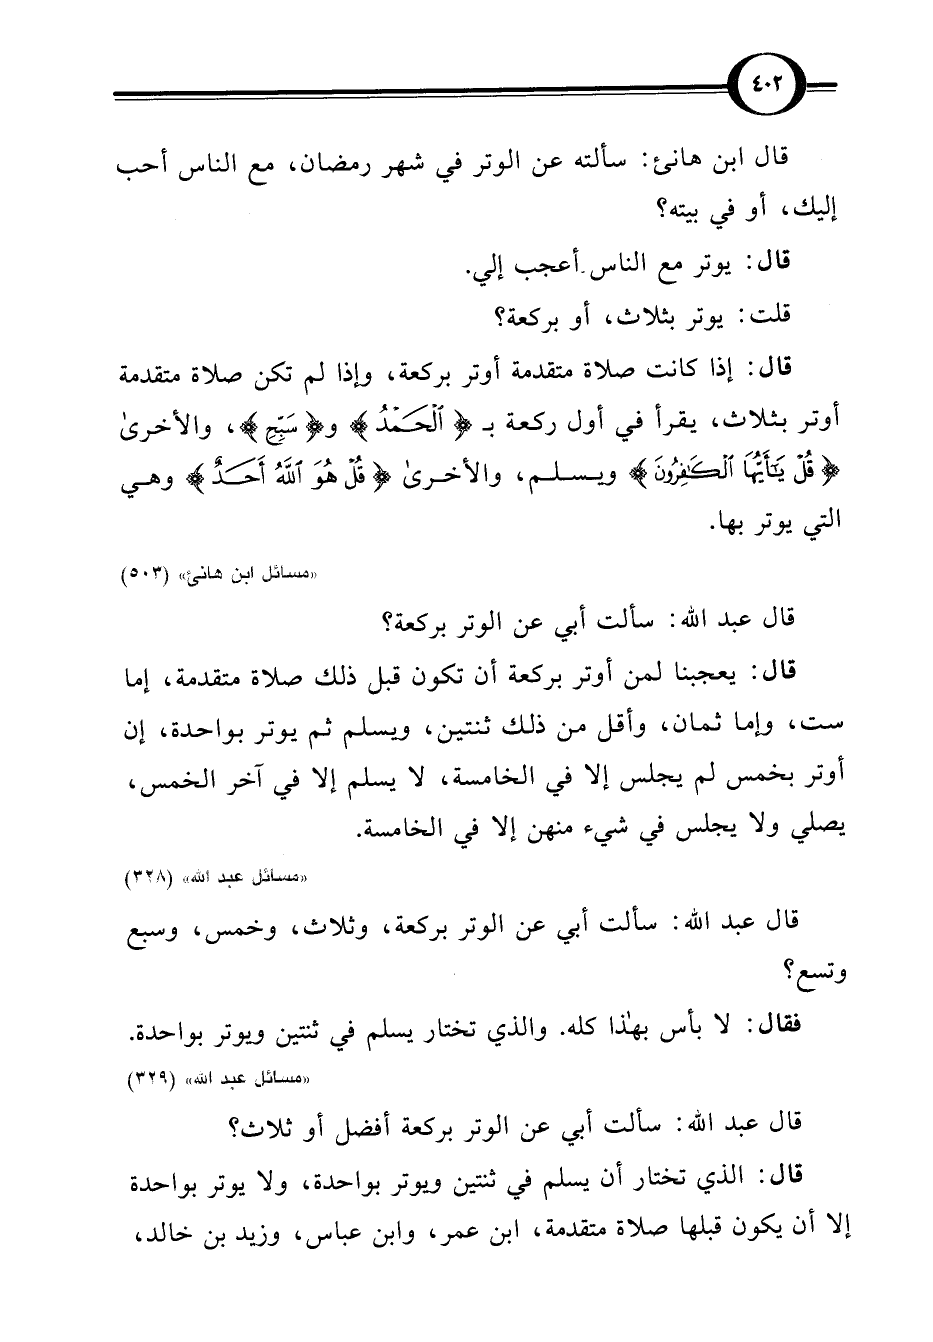 ٤٠٢
قال ابن هانئ: سألته عن الوتر في شهر رمضان، مع الناس أحب
إليك، أو في بيته؟
قال: يوتر مع الناس أعجب إلي.
قلت: يوتر بثلاث، أو بركعة؟
قال: إذا كانت صلاة متقدمة أوتر بركعة، وإذا لم تكن صلاة متقدمة
أوتر بثلاث، يقرأ في أول ركعة بـ ﴿ٱلْحَمْدُ﴾ و﴿سَبِّحِ﴾، والأخرىٰ
﴿قُلْ يَٰٓأَيُّهَا ٱلْكَٰفِرُونَ﴾ ويسلم، والأخرىٰ ﴿قُلْ هُوَ ٱللَّهُ أَحَدٌ﴾ وهي
التي يوتر بها.
«مسائل ابن هانئ» (٥٠٣)
قال عبد الله: سألت أبي عن الوتر بركعة؟
قال: يعجبنا لمن أوتر بركعة أن تكون قبل ذلك صلاة متقدمة، إما
ست، وإما ثمان، وأقل من ذلك ثنتين، ويسلم ثم يوتر بواحدة، إن
أوتر بخمس لم يجلس إلا في الخامسة، لا يسلم إلا في آخر الخمس،
يصلي ولا يجلس في شيء منهن إلا في الخامسة.
«مسائل عبد الله» (٣٢٨)
قال عبد الله: سألت أبي عن الوتر بركعة، وثلاث، وخمس، وسبع
وتسع؟
فقال: لا بأس بهٰذا كله. والذي تختار يسلم في ثنتين ويوتر بواحدة.
«مسائل عبد الله» (٣٢٩)
قال عبد الله: سألت أبي عن الوتر بركعة أفضل أو ثلاث؟
قال: الذي تختار أن يسلم في ثنتين ويوتر بواحدة، ولا يوتر بواحدة
إلا أن يكون قبلها صلاة متقدمة، ابن عمر، وابن عباس، وزيد بن خالد،